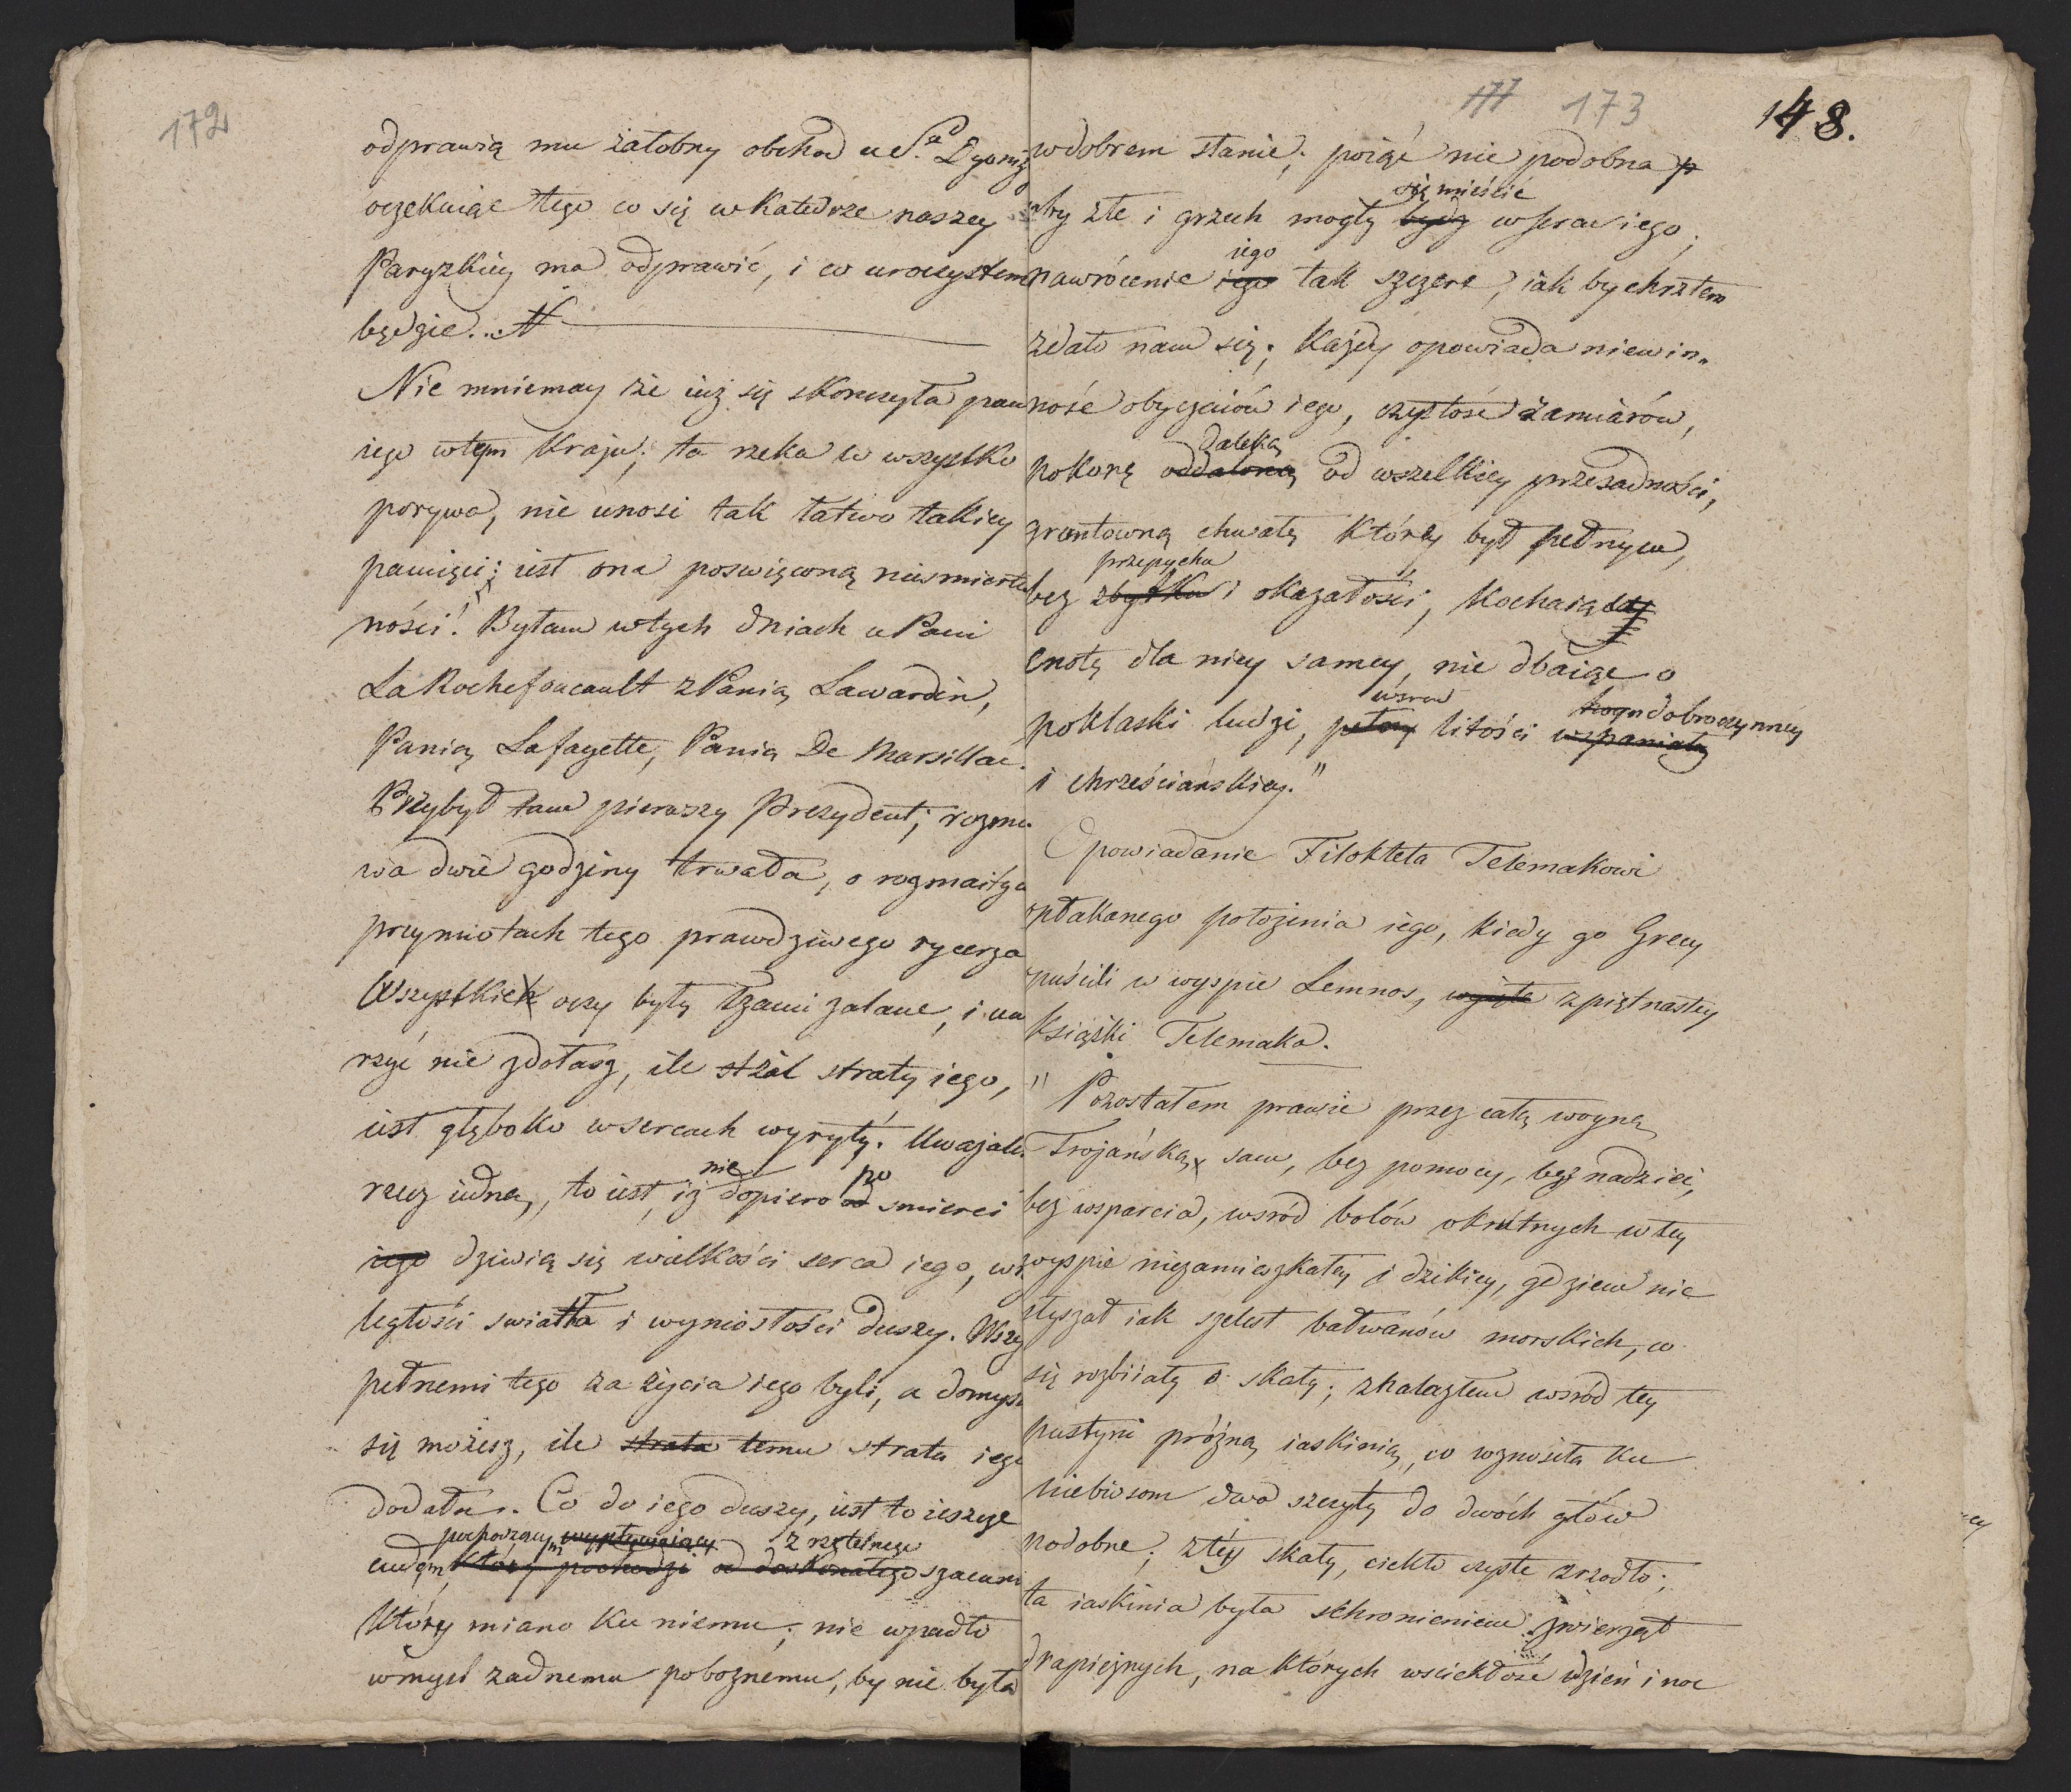 172
odprawią mu załobny obchod u Sgo Dyoniz
oczekuiąc tego co się w Katedrze naszey
Paryzkiey ma odprawić, i co uroczystem
będzie.
Nie mniemay że iuż się skonczyła pam
iego w tym Kraju; ta rzeka co wszystko
porywa, nie unosi tak łatwo takiey
pamięci; iest ona poswięconą niesmiertel
ności! Byłam w tych dniach u Pani
La Rochefoucault z Panią Lawardin,
Panią Lafayette, Panią De Marsillac.
Przybył tam pierwszy Prezydent; rozmo
wa dwie godziny trwała, o rozmaitych
przymiotach tego prawdziwego rycerza
Wszystkich oczy były łzami zalane, i uw
rzyć nie zdołasz, ile st żal straty iego,
iest głęboko w sercach wyryty. Uważale
rzecz iedną, to iest, iż nie dopiero od po smierci
iego dziwią się wielkości serca iego, wz
ległości swiatła i wyniosłości duszy. Wszy
pełnemi tego za życia iego byli, a domysl
się możesz, ile strata temu strata iego
dodała. Co do iego duszy, iest to ieszcze
pochodzącym wypływaiący z rzetelnego
cudem, który pochodzi od doskonałego szacunk
Który miano ku niemu; nie wpadło
w mysl zadnemu poboznemu, by nie była
177 173 148.
w dobrem stanie; poiąć nie podobna p
się mieścić
aby złe i grzech mogły bydź w sercu iego;
iego
nawrócenie iego tak szczere, iak by chrztem
zdało nam się; Każdy opowiada niewin„
ność obyczaiów iego, czystość zamiarów,
daleką
pokorę oddaloną od wszelkiey przesadności,
gruntowną chwałę którey był pełnym,
przepychu
bez zbytku i okazałości, kochaiący
cnotę dla niey samey, nie dbaiąc o
poklaski ludzi, pełny litości wspaniałey dobroczynney
i chrześciańskiey."
Opowiadanie Filokteta Telemakowi
opłakanego położenia iego, kiedy go Grecy
puścili w wyspie Lemnos, wyięte z piętnastey
Książki Telemaka.
" Pozostałem prawie przez całą woynę
Trojańską sam, bez pomocy, bez nadziei,
bez wsparcia, wsród bolów okrutnych w tey
wyspie niezamieszkałey i dzikiey, gdziem nie
słyszał iak szelest bałwanów morskich, co
się rozbiiały o skały; znalazłem wsród tey
pustyni próżną iaskinię, co wznosiła ku
niebiosom dwa szczyty do dwóch głów
podobne; z tey skały, ciekło czyste zrzodło;
ta iaskinia była schronieniem zwierząt
drapieżnych, na których wsciekłość dzień i noc